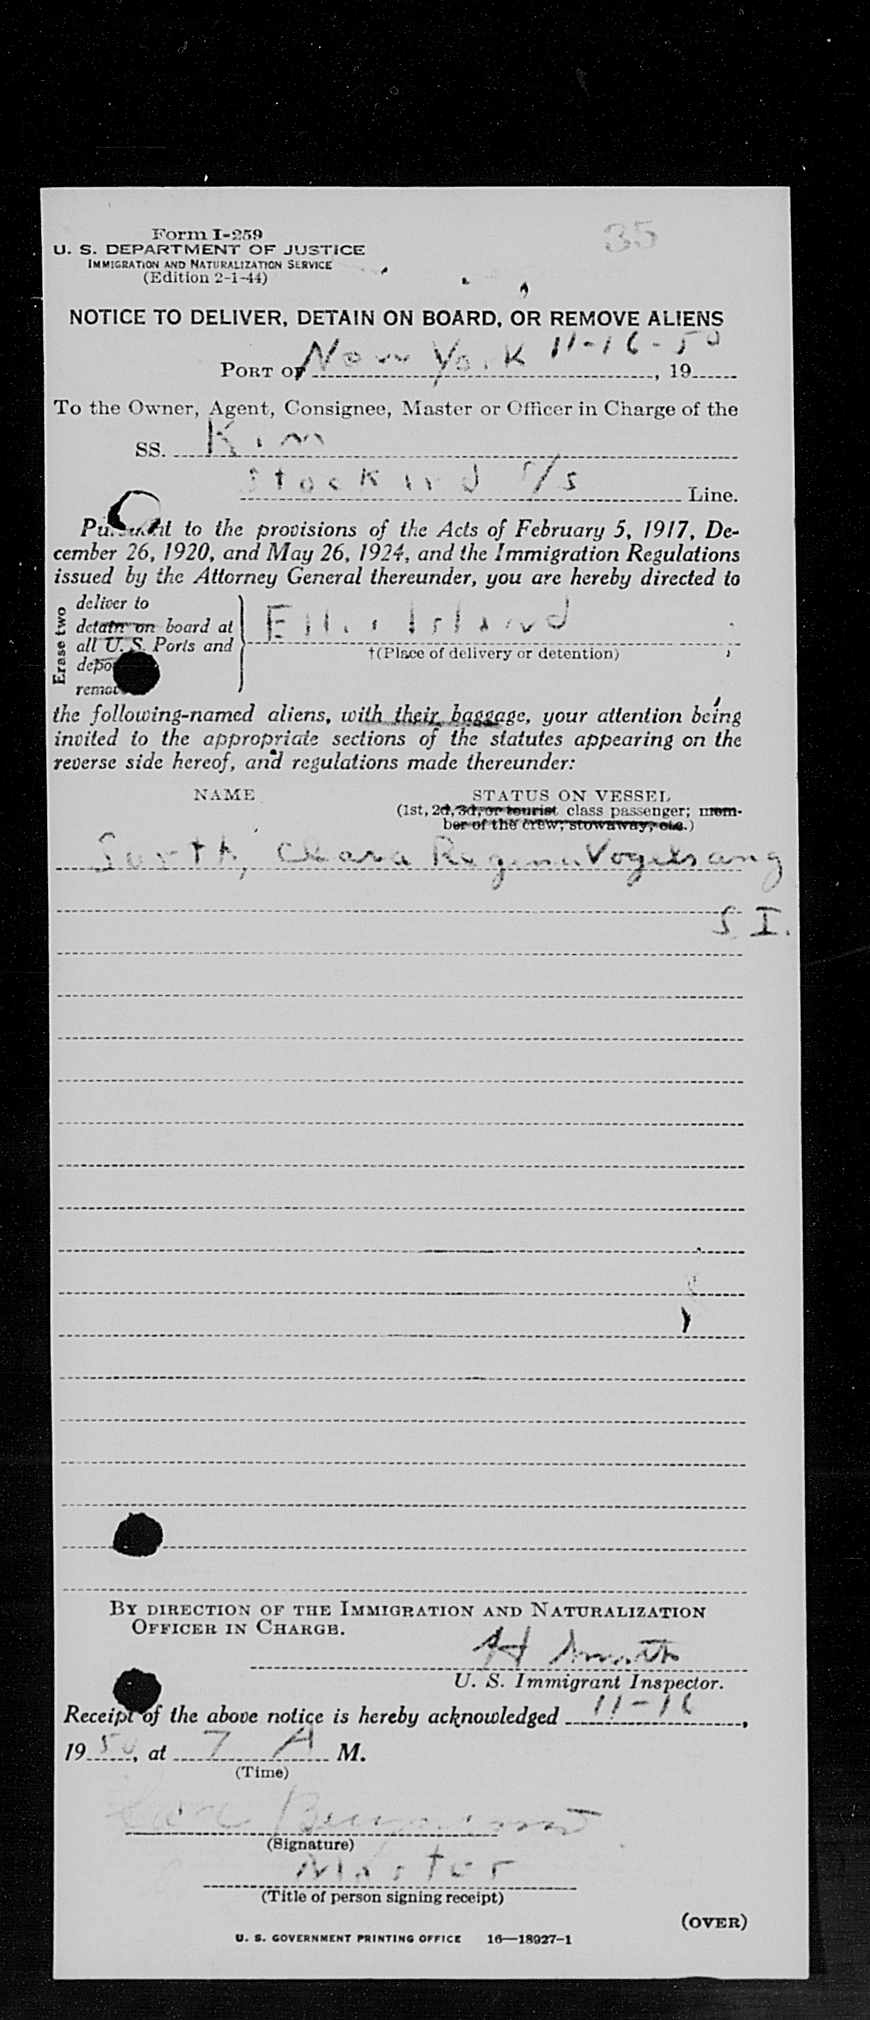 35
Form I-259
U. S. DEPARTMENT OF JUSTICE
IMMIGRATION AND NATURALIZATION SERVICE
(Edition 2-1-44)
NOTICE TO DELIVER, DETAIN ON BOARD, OR REMOVE ALIENS
11-16-50
PORT OF New York, 19
To the Owner, Agent, Consignee, Master or Officer in Charge of the
SS. Kim
Stockard S/S Line.
Pursuant to the provisions of the Acts of February 5, 1917, De-
cember 26, 1920, and May 26, 1924, and the Immigration Regulations
issued by the Attorney General thereunder, you are hereby directed to
Erase two
deliver to
detain on board at
all U. S. Ports and
depo
remov
Ellis Island
†(Place of delivery or detention)
the following-named aliens, with their baggage, your attention being
invited to the appropriate sections of the statutes appearing on the
reverse side hereof, and regulations made thereunder:
NAME STATUS ON VESSEL
(1st, 2d, 3d, or tourist class passenger; mem-
ber of the crew, stowaway, etc.)
Clara Regina Vogelsang
S. I.
BY DIRECTION OF THE IMMIGRATION AND NATURALIZATION
OFFICER IN CHARGE.
H
U. S. Immigrant Inspector.
Receipt of the above notice is hereby acknowledged 11-16,
1950, at 7 A M.
(Time)
(Signature)
Master
(Title of person signing receipt)
(OVER)
U. S. GOVERNMENT PRINTING OFFICE 16—18927-1